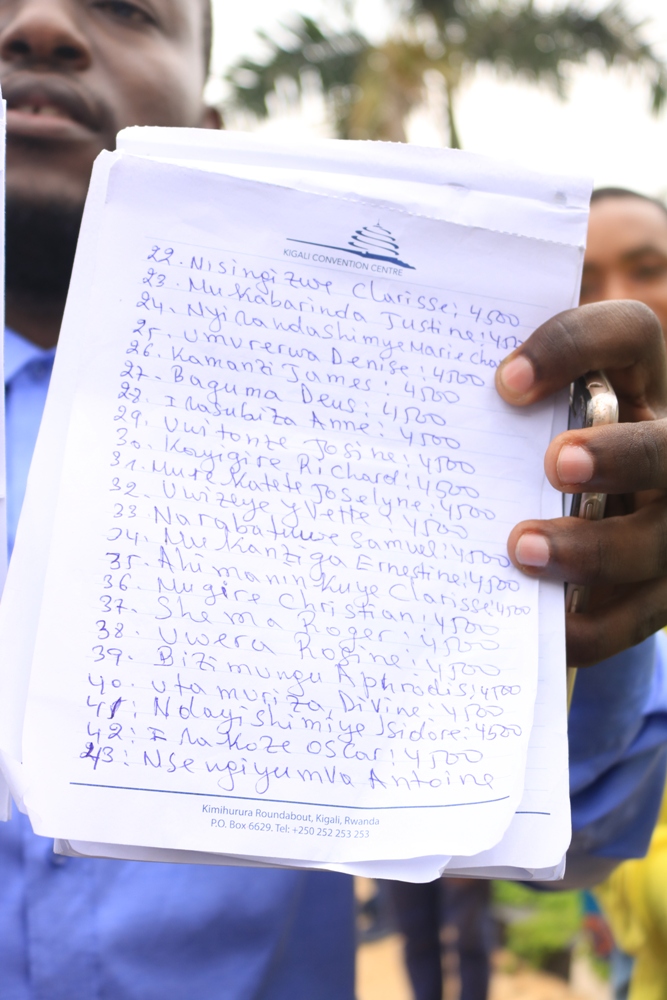 KIGALI CONVENTION CENTRE
22. Nisingizwe Clarisse: 4500
23. Mukabarinda Justine: 450
24. NyirandashimyeMarie Chan
25. Umurerwa Denise: 4500
26. Kamanzi James: 4500
27. Baguma Deus: 4500
28. Irasubiza Anne: 4500
29. Uwitonze Josine: 4500
30. Kayigire Richard: 4500
31. Mutekatete Joselyne: 4500
32. Uwizeye Yvette: 4500
33 Narabatuwe Samuel: 4500
34. Mukanziga Ernestine: 4500
35. Ahimaninkuye Clarisse: 4500
36. Mugire Christian: 4500
37. Shema Roger: 4500
38. Uwera Rosine: 4500
39. Bizimungu Aphrodis: 4500
40. Utamuriza Divine: 4500
41: Ndayishimiye Isidore: 4500
42: Irakoze Oscar: 4500
43: Nsengiyumva Antoine
Kimihurura Roundabout, Kigali, Rwanda
P.O. Box 6629. Tel: +250 252 253 253